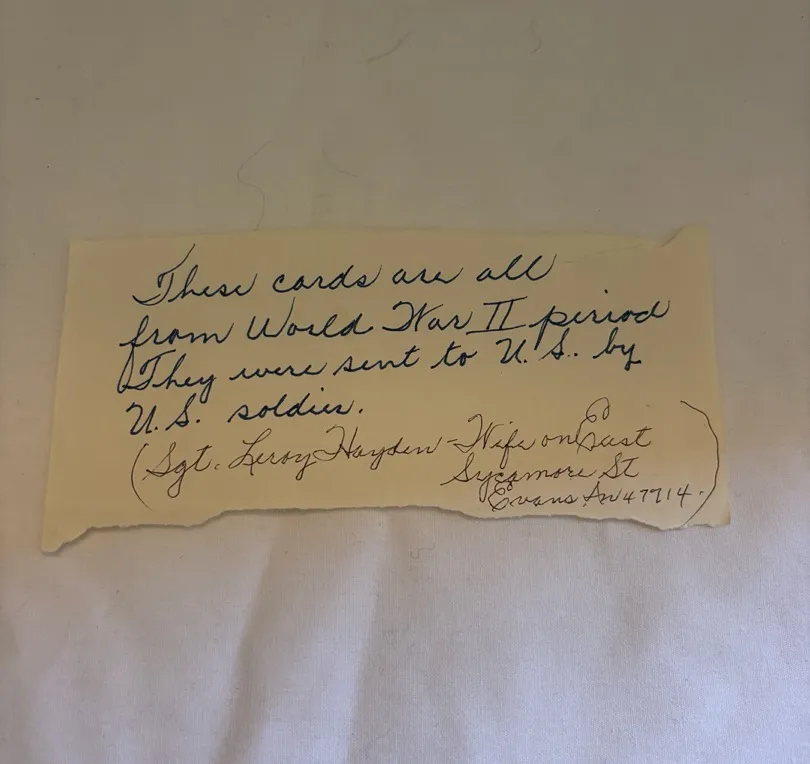 These cards are all
from World War II period
They were sent to U.S. by
U.S. soldier.
(Sgt. Leroy Hayden - Wife on East
Sycamore St
Evans. In 47714.)